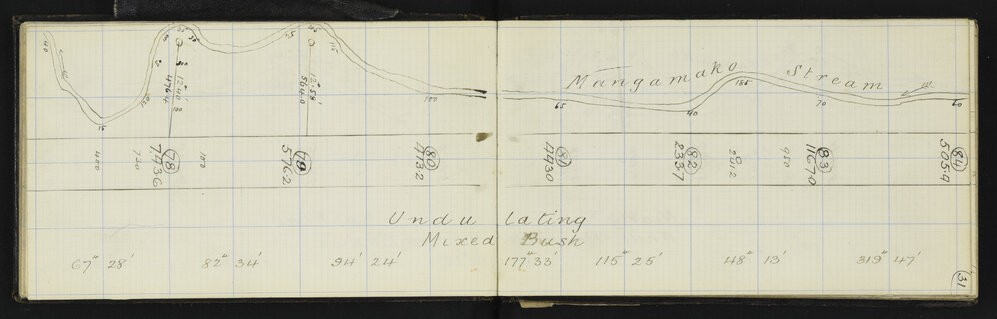 Mangamako Stream
40
15
50
35
45
110
100
65
40
185
70
60
12° 40'
476.4
100
12° 58'
564.0
400
730
78
743.6
100
79
576.2
80
413.2
81
493.0
82
233.7
201.2
950
83
1167.0
84
505.4
Undulating
Mixed Bush
67° 28'
82° 34'
94° 24'
177° 33'
115° 25'
48° 13'
319° 47'
31